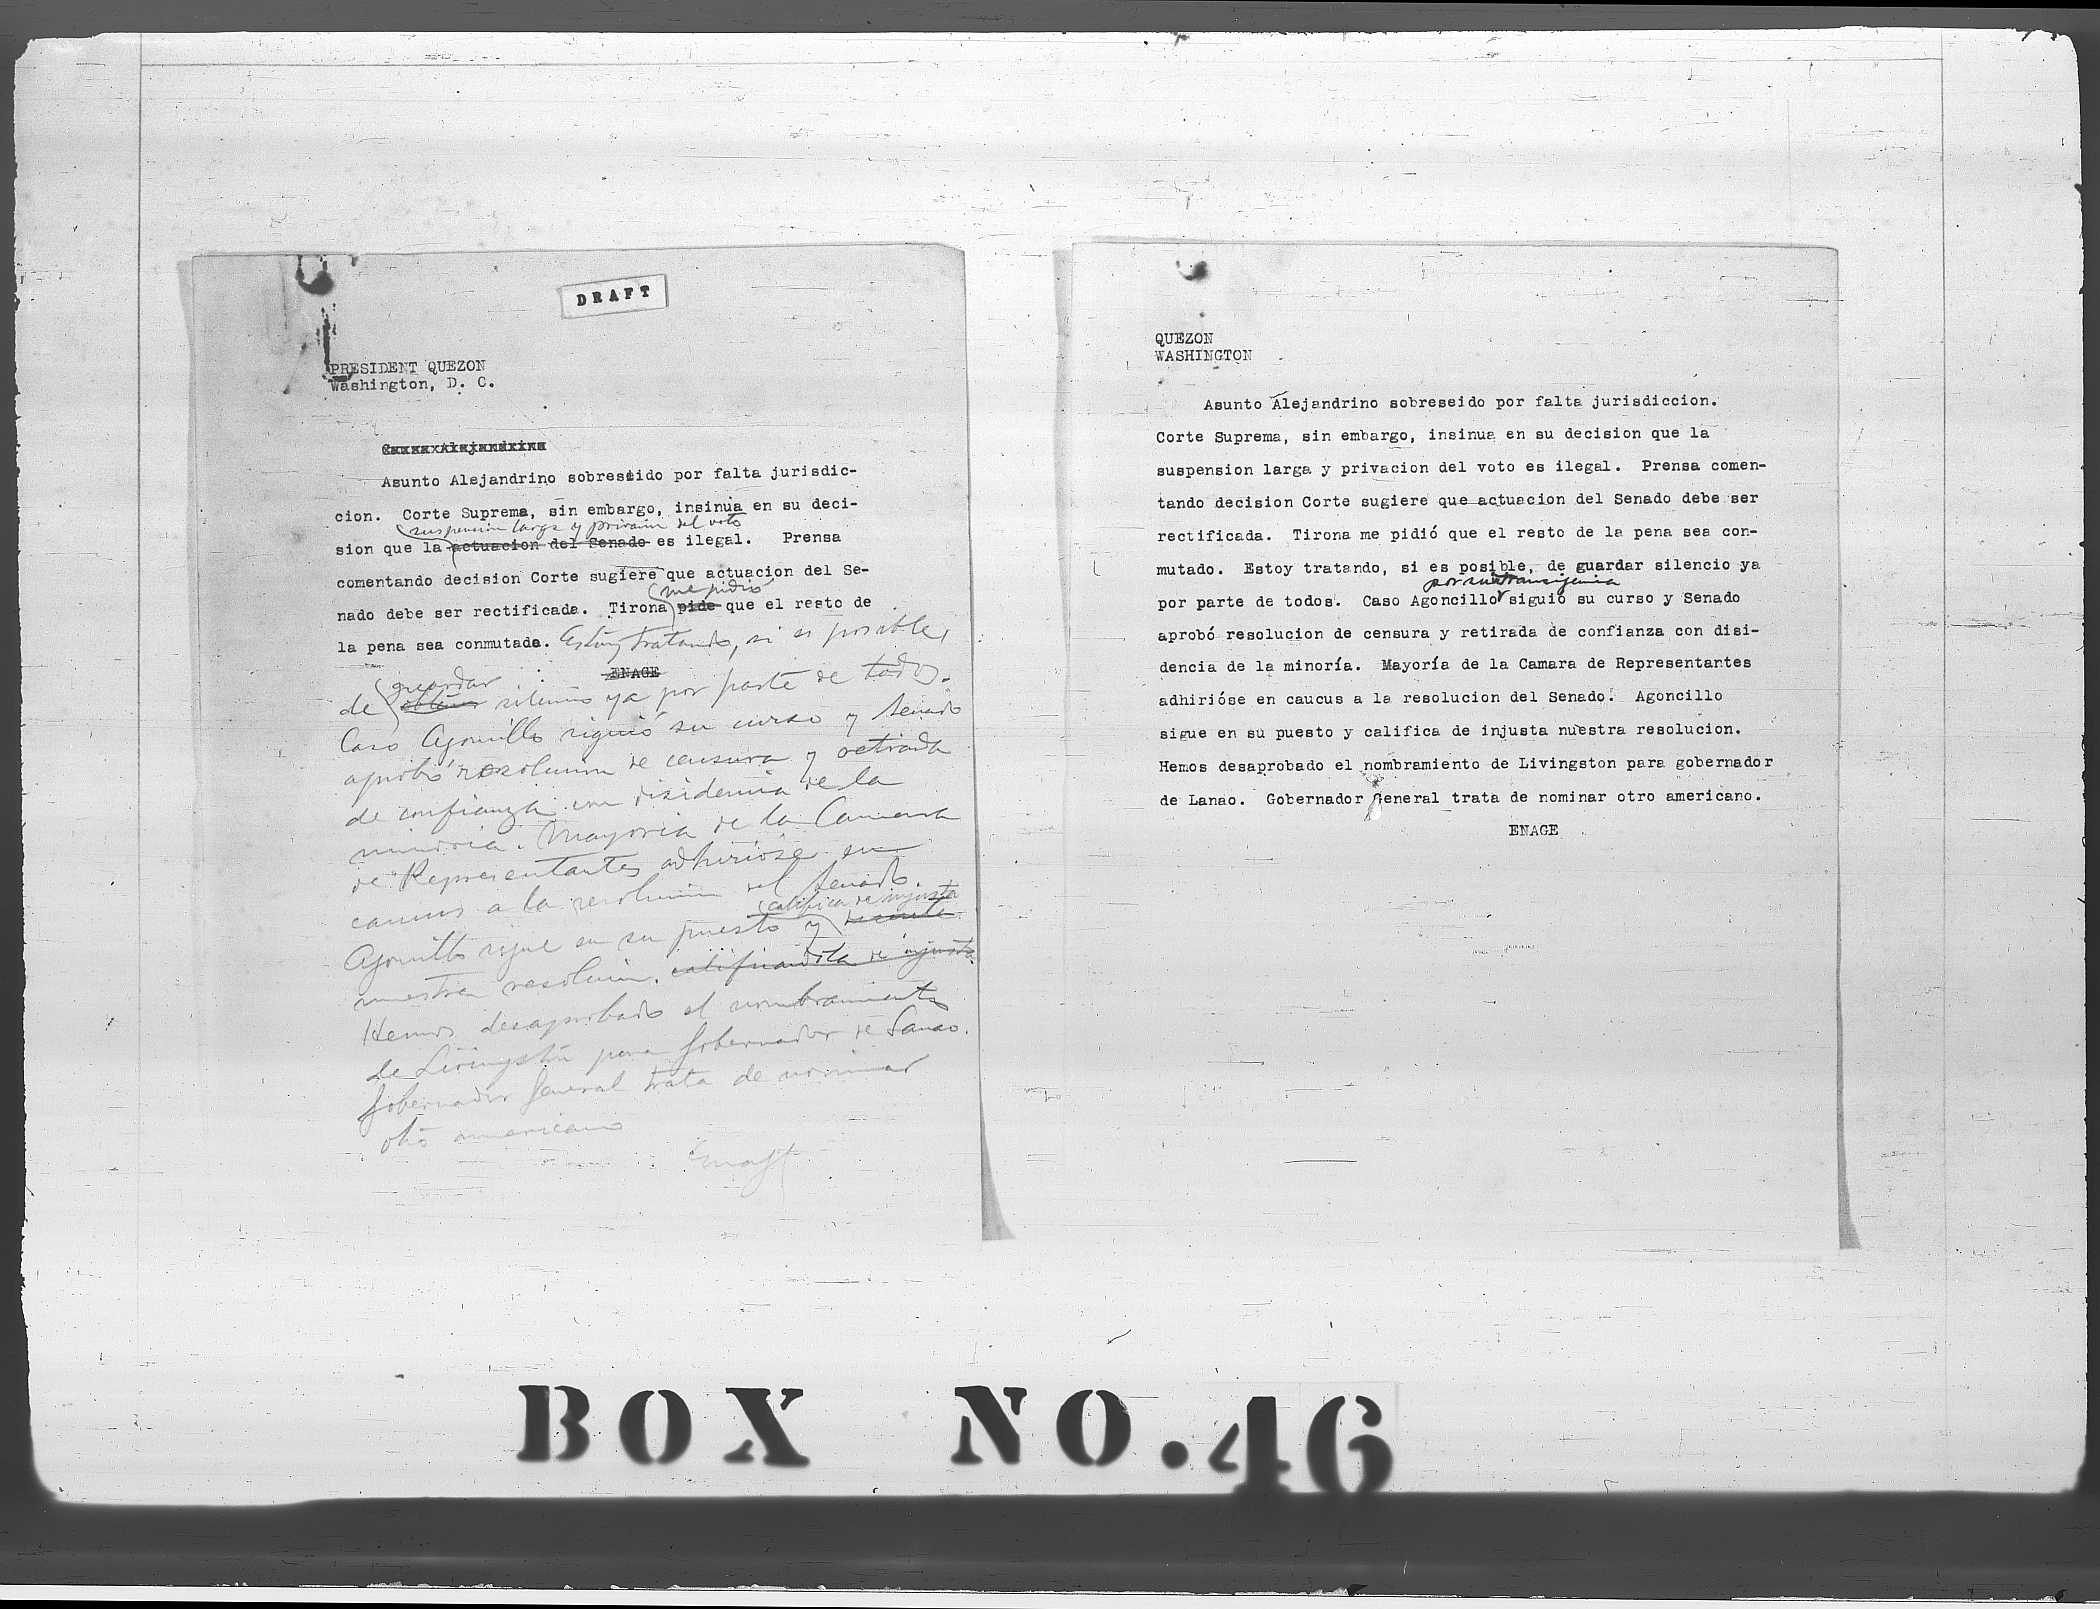 DRAFT
PRESIDENT QUEZON
Washington, D. C.
Asunto Alejandrino sobreseido por falta jurisdic-
cion. Corte Suprema, sin embargo, insinua en su deci-
suspension larga y privacion del voto
sion que la actuacion del Senado es ilegal. Prensa
comentando decision Corte sugiere que actuacion del Se-
me pidió
nado debe ser rectificada. Tirona pide que el resto de
la pena sea conmutada. Estoy tratando, si es posible,
ENAGE
guardar
de silencio ya por parte de todos.
Caso Agoncillo siguió su curso y Senado
aprobó resolucion de censura y retirada
de confianza con disidencia de la
minoría. Mayoría de la Camara
de Representantes adhirióse en
caucus a la resolucion del Senado.
califica de injusta
Agoncillo sigue en su puesto y
nuestra resolucion. calificandola de injusta.
Hemos desaprobado el nombramiento
de Livingston para gobernador de Lanao.
Gobernador General trata de nominar
otro americano
Enage
QUEZON
WASHINGTON
Asunto Alejandrino sobreseido por falta jurisdiccion.
Corte Suprema, sin embargo, insinua en su decision que la
suspension larga y privacion del voto es ilegal. Prensa comen-
tando decision Corte sugiere que actuacion del Senado debe ser
rectificada. Tirona me pidió que el resto de la pena sea con-
mutado. Estoy tratando, si es posible, de guardar silencio ya
por su intransigencia
por parte de todos. Caso Agoncillo siguió su curso y Senado
aprobó resolucion de censura y retirada de confianza con disi-
dencia de la minoría. Mayoría de la Camara de Representantes
adhirióse en caucus a la resolucion del Senado. Agoncillo
sigue en su puesto y califica de injusta nuestra resolucion.
Hemos desaprobado el nombramiento de Livingston para gobernador
de Lanao. Gobernador General trata de nominar otro americano.
ENAGE
BOX NO. 46